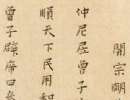 開宗明
仲尼居曾子
順天下民用和
曾子辟席曰參